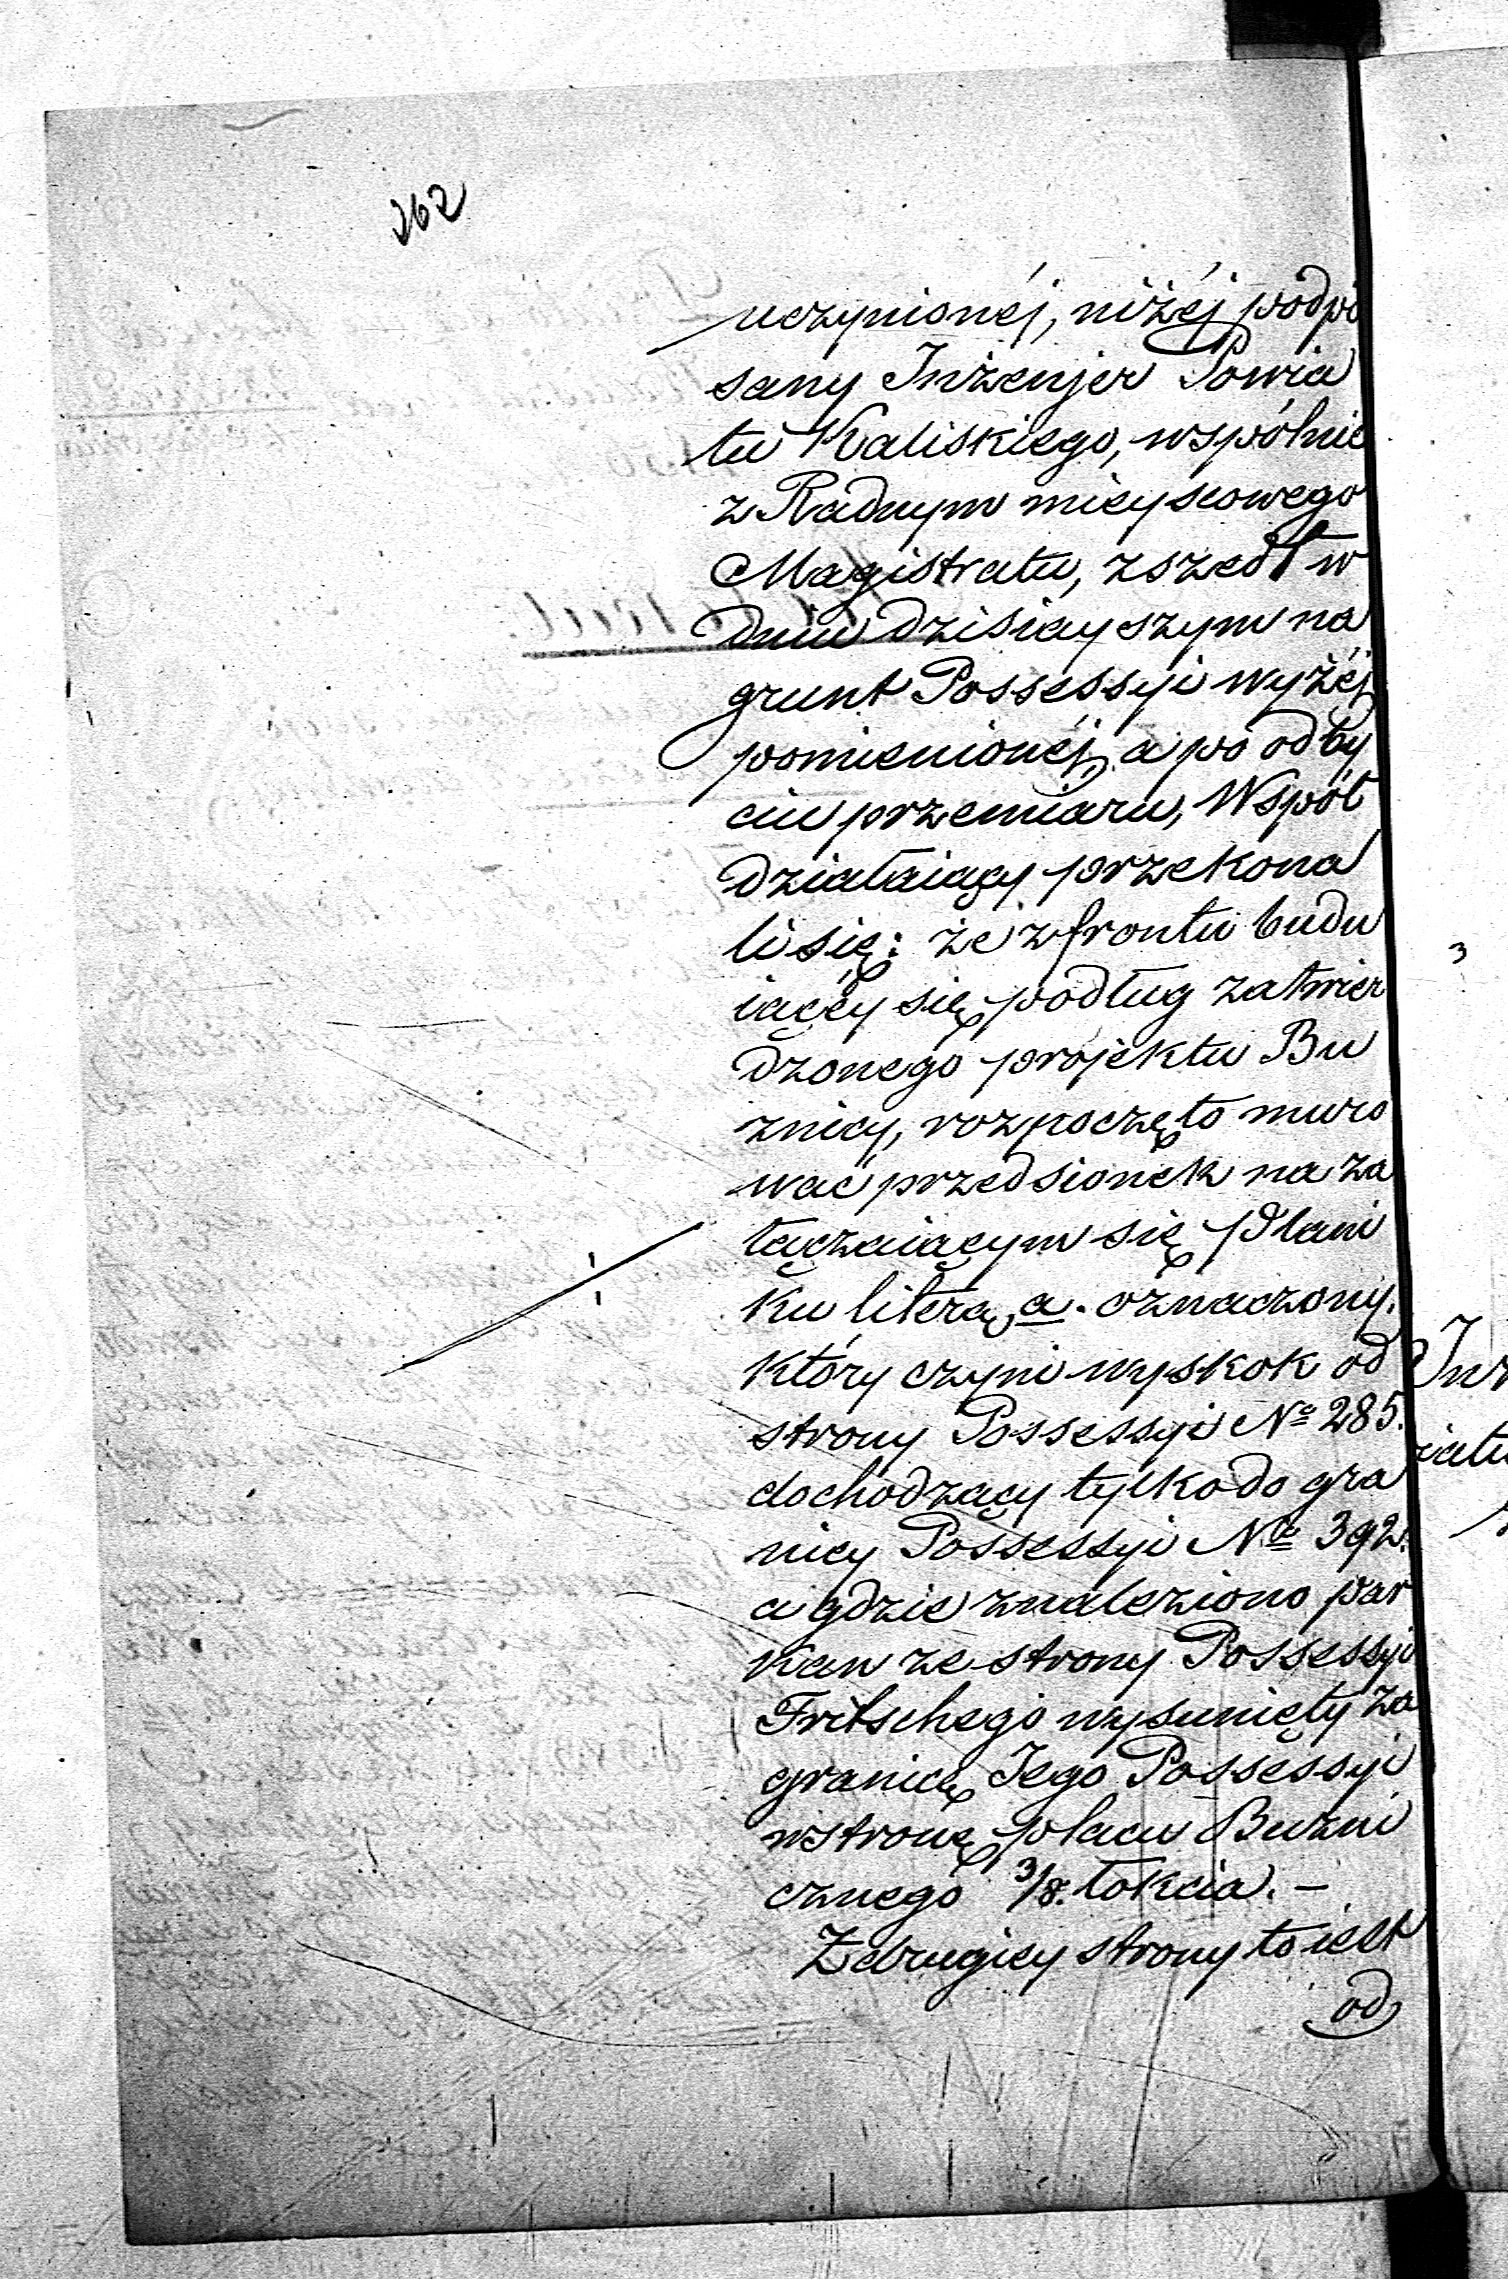 262
uczynionéj, niżéj podpi
sany Inżenjer Powia
tu Kaliskiego, wspólnie
z Radnym mieyscowego
Magistratu, zszedł w
dniu dzisiayszym na
grunt Possessyi wyżéj
pomienionéj, a po odby
ciu przemiaru, Współ
działaiący przekona
li się: że z frontu budu
iącéy się podług zatwier
dzonego projektu Bu
żnicy, rozpoczęto muro
wać przedsionek na za
łączaiącym się Plani
ku literą a. oznaczony.
który czyni wyskok od
strony Possessyi No 285.
dochodzący tylko do gra
nicy Possessyi No 392.
a gdzie znaleziono par
kan ze strony Possessyi
Fritschego wysunięty za
granicę Jego Possessyi
w stronę placu Bużni
cznego 3/8. łokcia. –
Z drugiey strony to iest
od